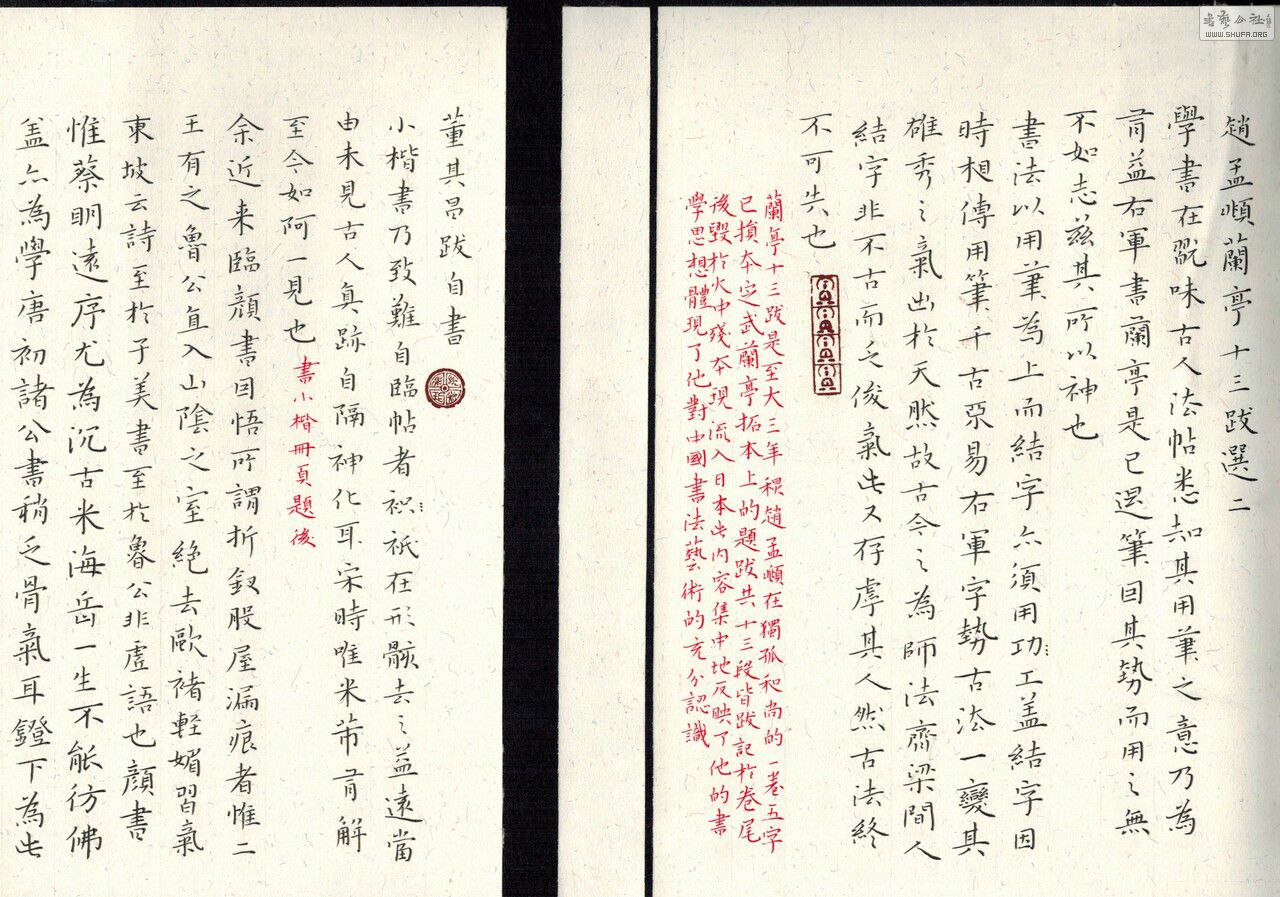 趙孟頫蘭亭十三跋選二
學書在翫味古人法帖悉知其用筆之意乃為
有益右軍書蘭亭是已退筆因其勢而用之無
不如志茲其所以神也
書法以用筆為上而結字亦須用功工蓋結字因
時相傳用筆千古不易右軍字勢古法一變其
雄秀之氣出於天然故古今之為師法齊梁間人
結字非不古而乏俊氣此又存虖其人然古法終
不可失也
蘭亭十三跋是至大三年穤趙孟頫在獨孤和尚的一卷五字
已損本定武蘭亭拓本上的題跋共十三段皆跋記於卷尾
後毀於火中殘本現流入日本此內容集中地反映了他的書
學思想體現了他對中國書法藝術的充分認識
董其昌跋自書
小楷書乃致難自臨帖者衹祇在形骸去之益遠當
由未見古人真跡自隔神化耳宋時唯米芾有解
至今如阿一見也
書小楷冊頁題後
余近来臨顏書因悟所謂折釵股屋漏痕者惟二
王有之魯公直入山陰之室絕去歐褚軽媚習氣
東坡云詩至於子美書至於魯公非虛語也顏書
惟蔡明遠序尤為沉古米海岳一生不能彷佛
盖亦為學唐初諸公書稍乏骨氣耳鐙下為此
書藝公社
WWW.SHUFA.ORG